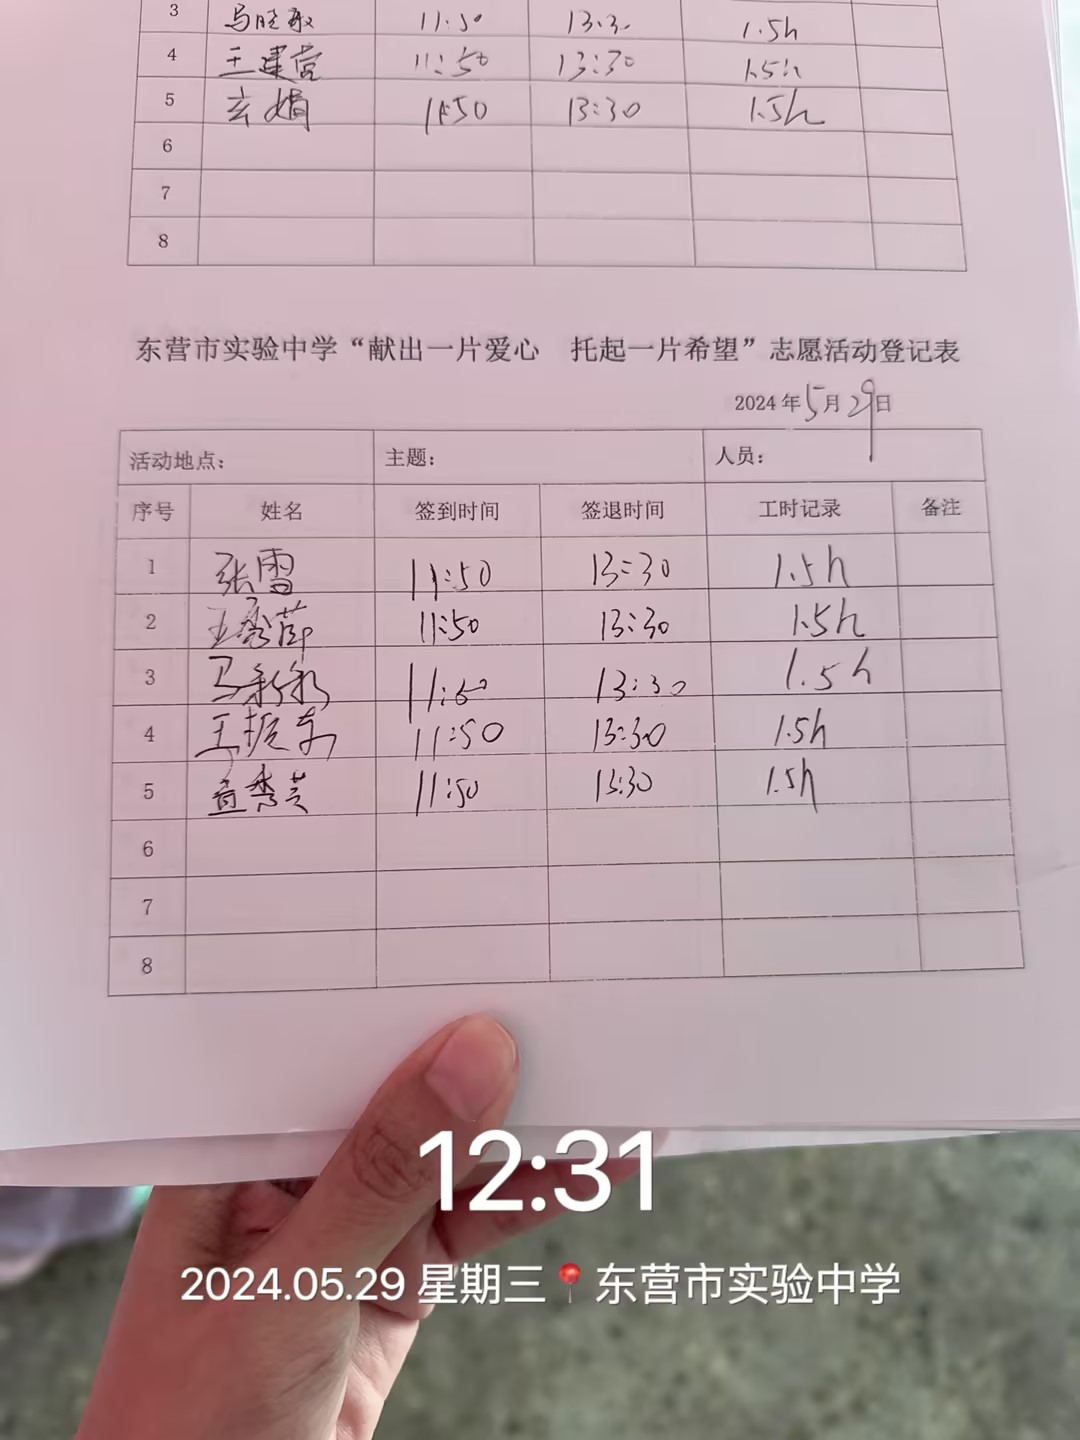 3 马晓敏 11:50 13:30 1.5h
4 王建营 11:50 13:30 1.5h
5 玄娟 11:50 13:30 1.5h
6
7
8
东营市实验中学“献出一片爱心 托起一片希望”志愿活动登记表
2024年5月29日
活动地点： 主题： 人员：
序号 姓名 签到时间 签退时间 工时记录 备注
1 张雪 11:50 13:30 1.5h
2 王秀茹 11:50 13:30 1.5h
3 马 11:50 13:30 1.5h
4 王振东 11:50 13:30 1.5h
5 11:50 13:30 1.5h
6
7
8
12:31
2024.05.29 星期三 东营市实验中学